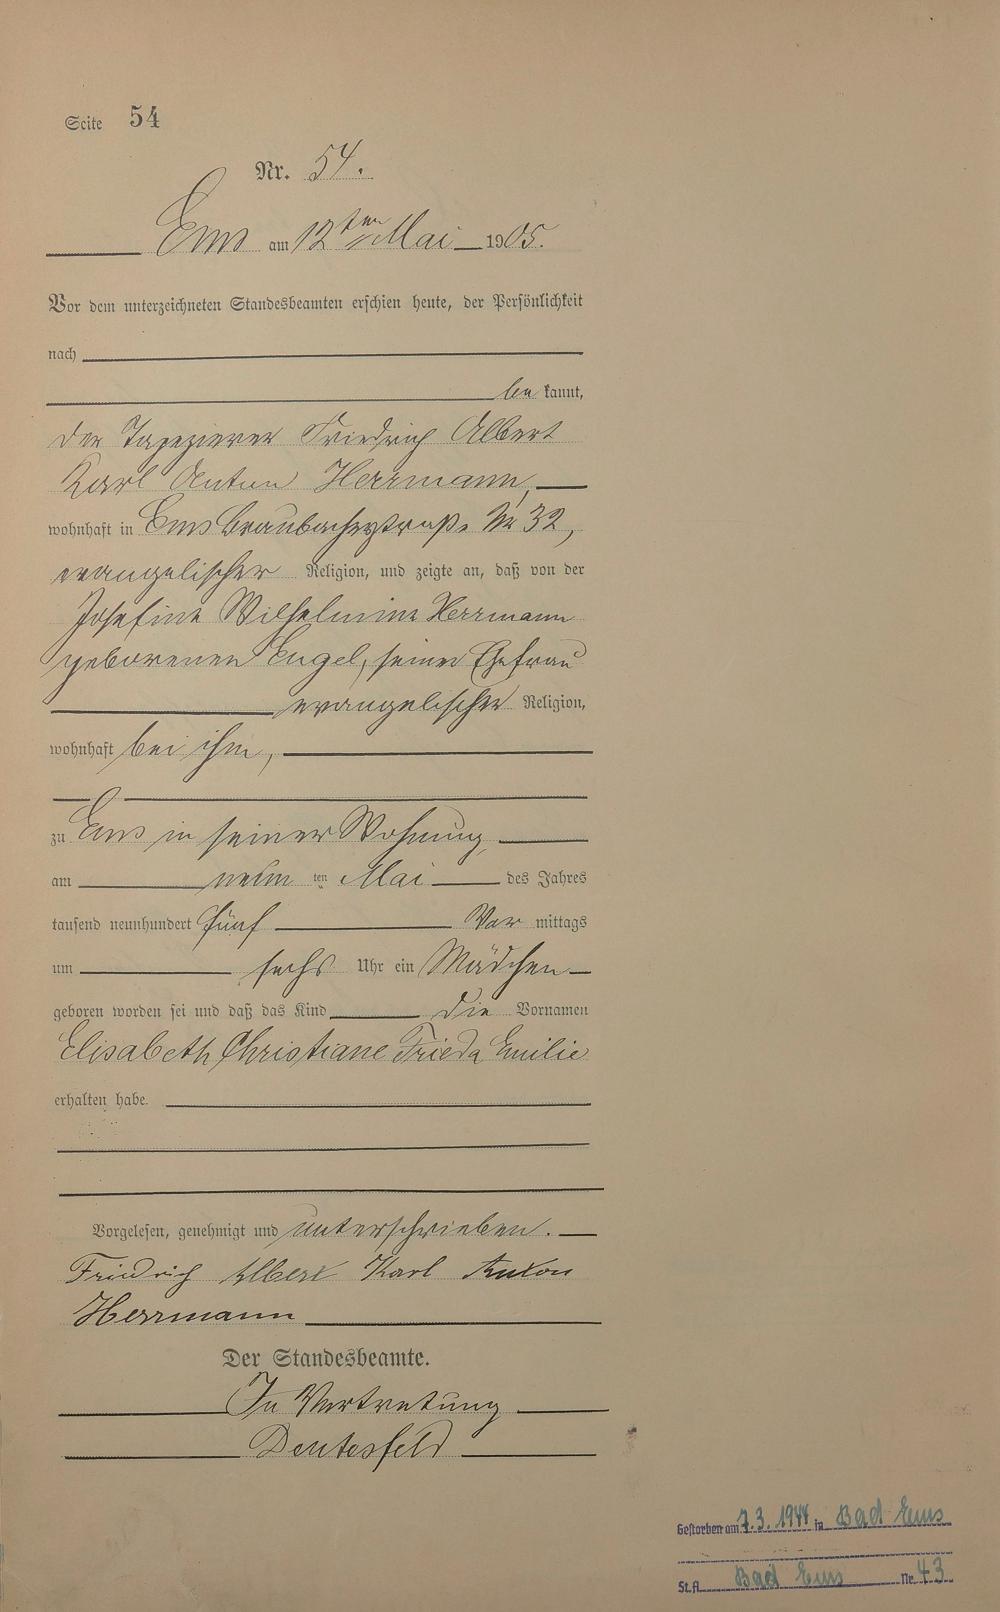 Seite 54
Nr. 54.
Ems am 12ten Mai 1905.
Vor dem unterzeichneten Standesbeamten erschien heute, der Persönlichkeit
nach
be kannt,
der Tapezierer Friedrich Albert
Karl Anton Herrmann,
wohnhaft in Ems Braubacherstraße Nr 32,
evangelischer Religion, und zeigte an, daß von der
Josefine Wilhelmine Herrmann
geborenen Engel, seiner Ehefrau
evangelischer Religion,
wohnhaft bei ihm,
zu Ems in seiner Wohnung,
am neun ten Mai des Jahres
tausend neunhundert fünf Vor mittags
um sechs Uhr ein Mädchen
geboren worden sei und daß das Kind die Vornamen
Elisabeth Christiane Frieda Emilie
erhalten habe.
Vorgelesen, genehmigt und unterschrieben.
Friedrich Albert Karl Anton
Herrmann
Der Standesbeamte.
In Vertretung
Gestorben am 7.3.1944 in Bad Ems
St.A. Bad Ems Nr. 43